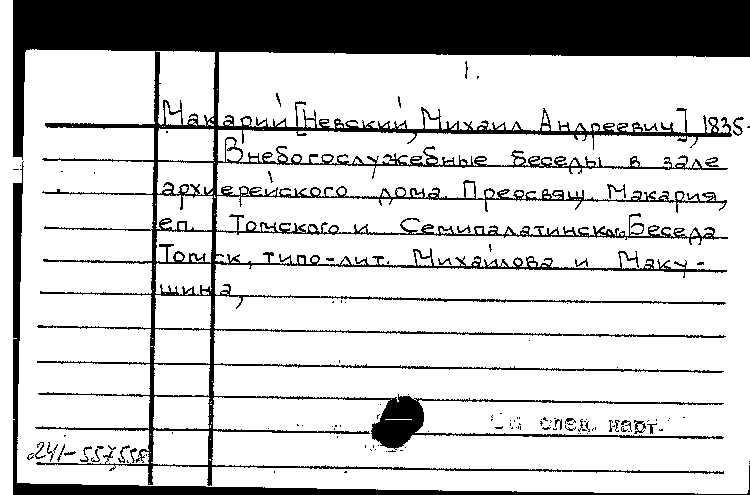 1.
Макарий [Невский, Михаил Андреевич], 1835-
Внебогослужебные беседы в зале
архиерейского дома. Преосвящ. Макария,
еп. Томского и Семипалатинского. Беседа
Томск, типо-лит. Михайлова и Маку-
шина,
См след. карт.
241-557,558